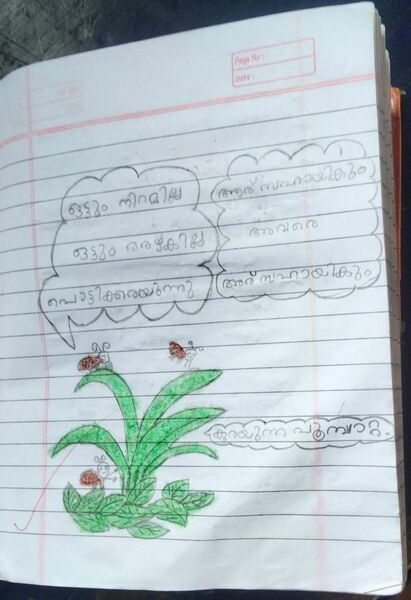 Page No :
Date :
ഒട്ടും നിറമില്ല
ഒട്ടും അഴകില്ല
പൊട്ടിക്കരയുന്നു
ആര് സഹായികും
അവരെ
ആര് സഹായികും
കരയുന്ന പൂമ്പാറ്റ.